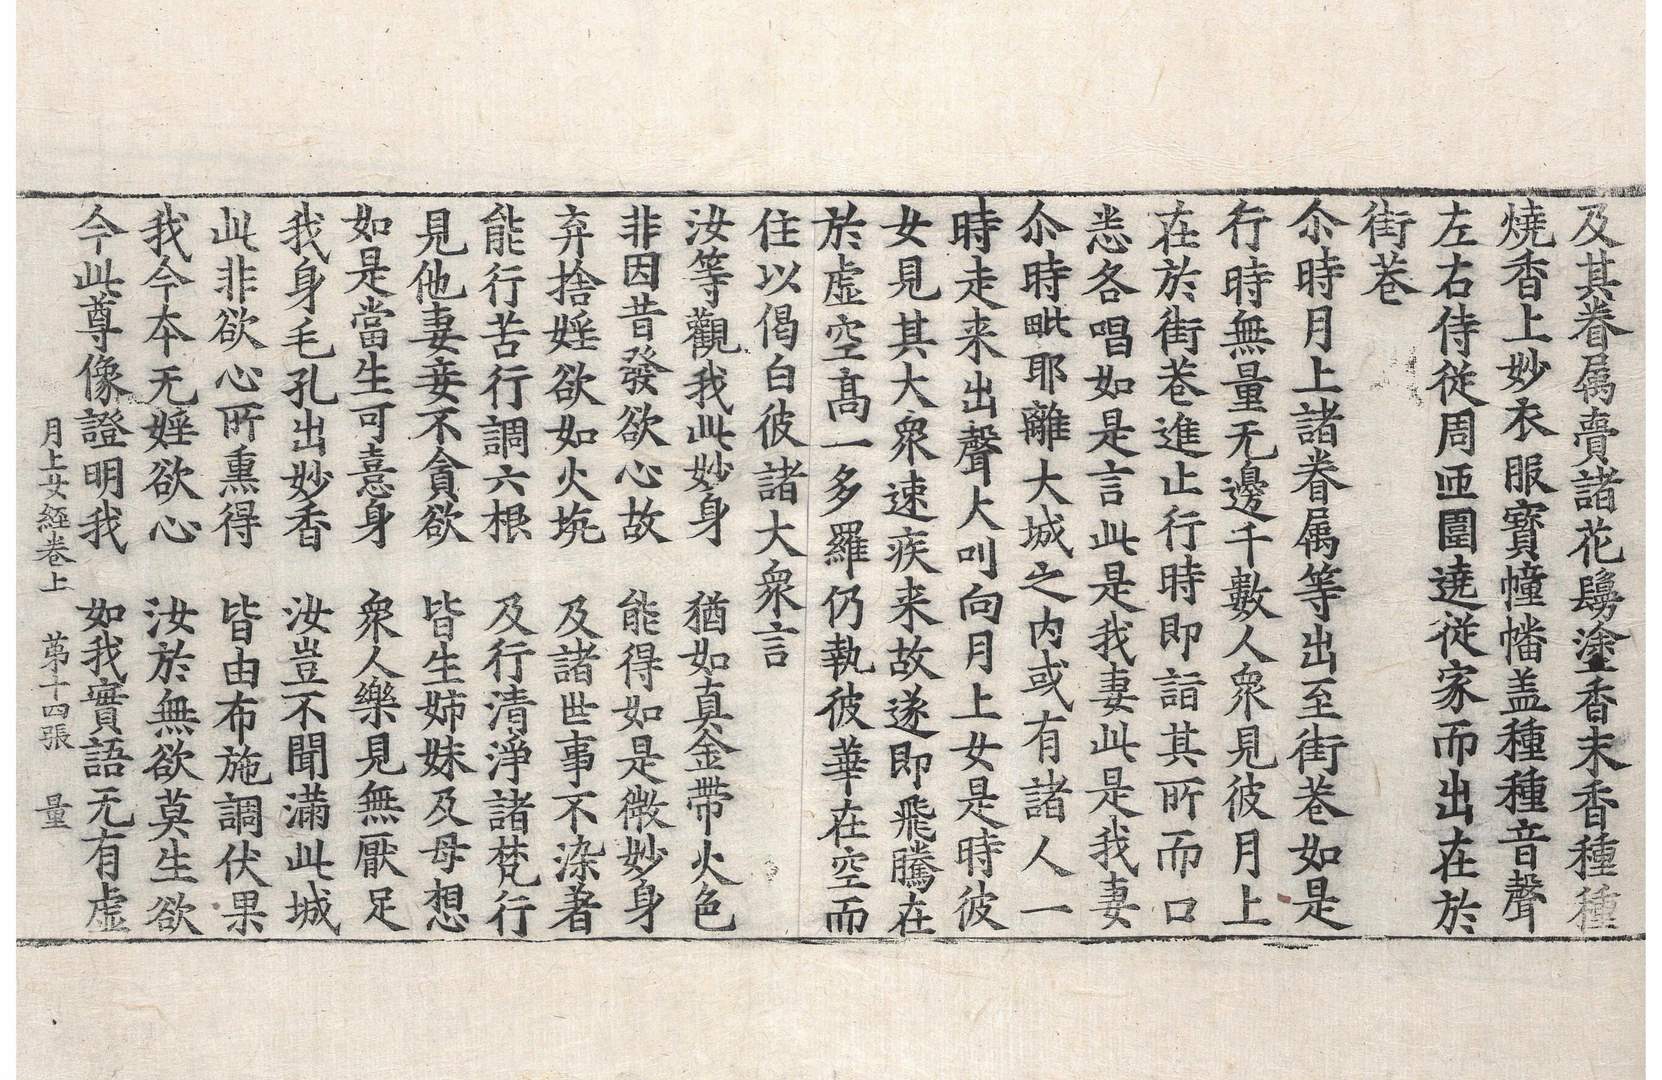 及其眷属賣諸花鬘塗香末香種種
燒香上妙衣服寶幢幡盖種種音聲
左右侍從周匝圍遶從家而出在於
街巷
尒時月上諸眷属等出至街巷如是
行時無量无邊千數人衆見彼月上
在於街巷進止行時即詣其所而口
悉各唱如是言此是我妻此是我妻
尒時毗耶離大城之内或有諸人一
時走来出聲大叫向月上女是時彼
女見其大衆速疾来故遂即飛騰在
於虛空髙一多羅仍執彼華在空而
住以偈白彼諸大衆言
汝等觀我此妙身　猶如真金帶火色
非因昔發欲心故　能得如是微妙身
弃捨婬欲如火坑　及諸世事不染著
能行苦行調六根　及行清淨諸梵行
見他妻妾不貪欲　皆生姉妹及母想
如是當生可憙身　衆人樂見無厭足
我身毛孔出妙香　汝豈不聞滿此城
此非欲心所熏得　皆由布施調伏果
我今本无婬欲心　汝於無欲莫生欲
今此尊像證明我　如我實語无有虛
月上女經卷上　苐十四張　量